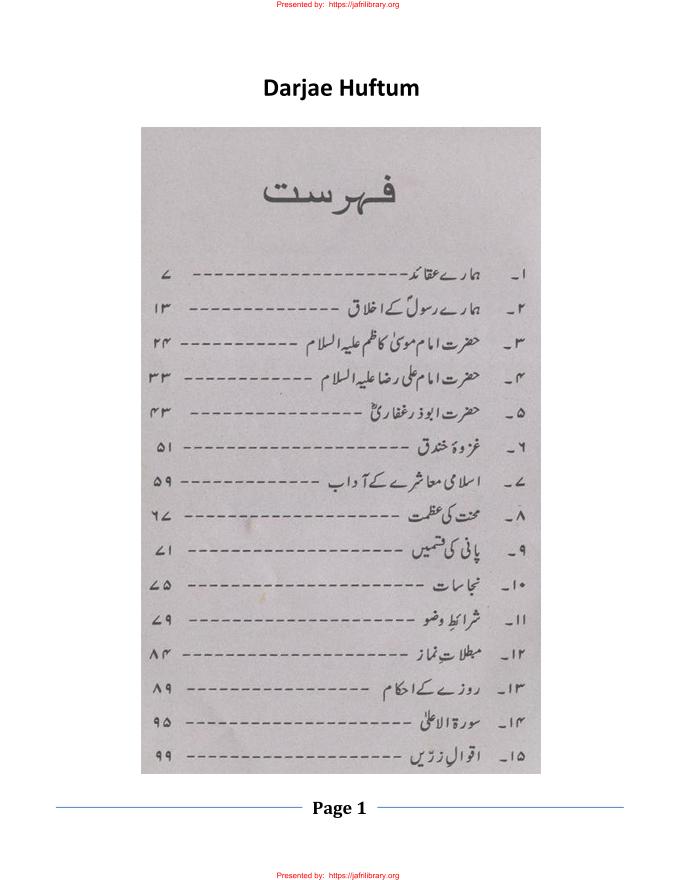 Presented by: https://jafrilibrary.org
Darjae Huftum
فہرست
۱۔ ہمارے عقائد-------------------- ۷
۲۔ ہمارے رسولؐ کے اخلاق -------------- ۱۳
۳۔ حضرت امام موسیٰ کاظم علیہ السلام ----------- ۲۴
۴۔ حضرت امام علی رضا علیہ السلام ------------ ۳۳
۵۔ حضرت ابوذر غفاریؓ ---------------- ۴۳
۶۔ غزوۂ خندق --------------------- ۵۱
۷۔ اسلامی معاشرے کے آداب ------------- ۵۹
۸۔ محنت کی عظمت -------------------- ۶۷
۹۔ پانی کی قسمیں -------------------- ۷۱
۱۰۔ نجاسات ---------------------- ۷۵
۱۱۔ شرائطِ وضو --------------------- ۷۹
۱۲۔ مبطلاتِ نماز --------------------- ۸۴
۱۳۔ روزے کے احکام ----------------- ۸۹
۱۴۔ سورۃ الاعلیٰ --------------------- ۹۵
۱۵۔ اقوالِ زرّیں -------------------- ۹۹
Page 1
Presented by: https://jafrilibrary.org